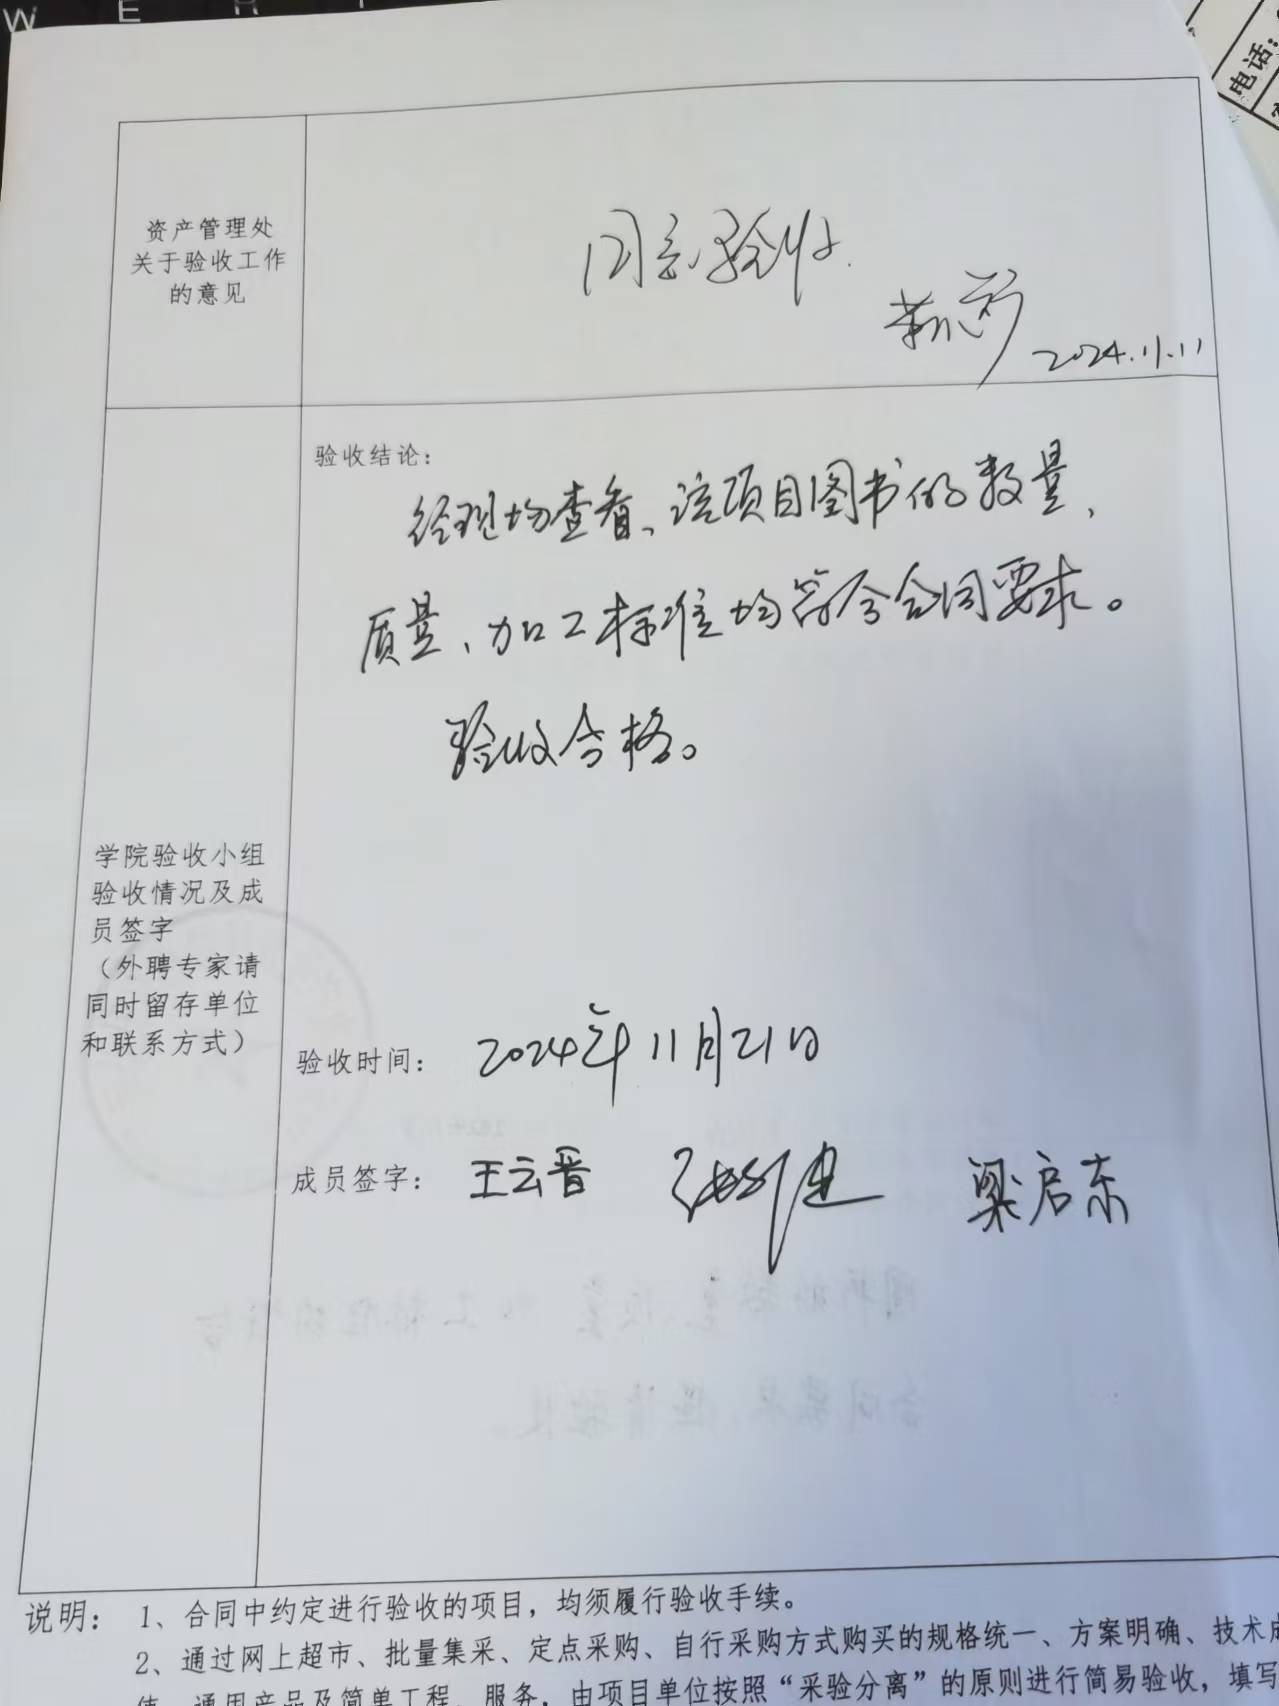 W E
电话:
资产管理处
关于验收工作
的意见
同意验收.
2024.11.11
验收结论:
经现场查看、该项目图书的数量、
质量、加工标准均符合合同要求。
验收合格。
学院验收小组
验收情况及成
员签字
（外聘专家请
同时留存单位
和联系方式）
验收时间: 2024年11月21日
成员签字: 王云晋 梁启东
说明: 1、合同中约定进行验收的项目，均须履行验收手续。
2、通过网上超市、批量集采、定点采购、自行采购方式购买的规格统一、方案明确、技术成
值、通用产品及简单工程、服务，由项目单位按照“采验分离”的原则进行简易验收，填写